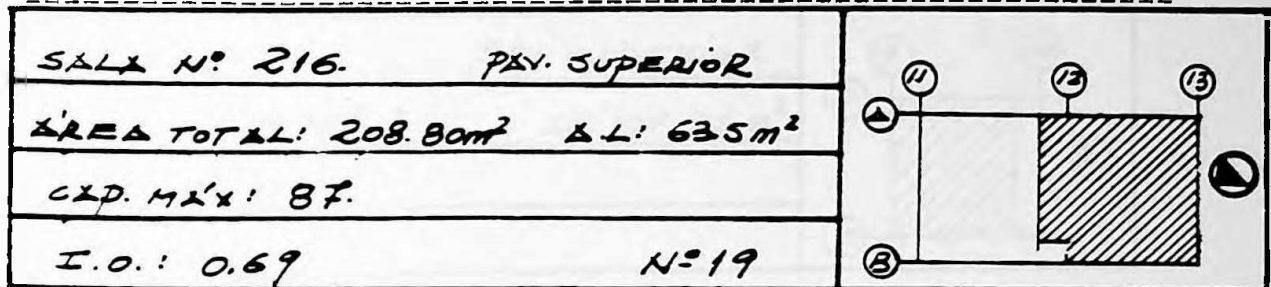 SALA Nº 216. PAV. SUPERIOR
ÁREA TOTAL: 208.80m² AL: 635m²
CAP. MÁX: 87.
I.O.: 0.69 Nº19
11 13 13
A
B